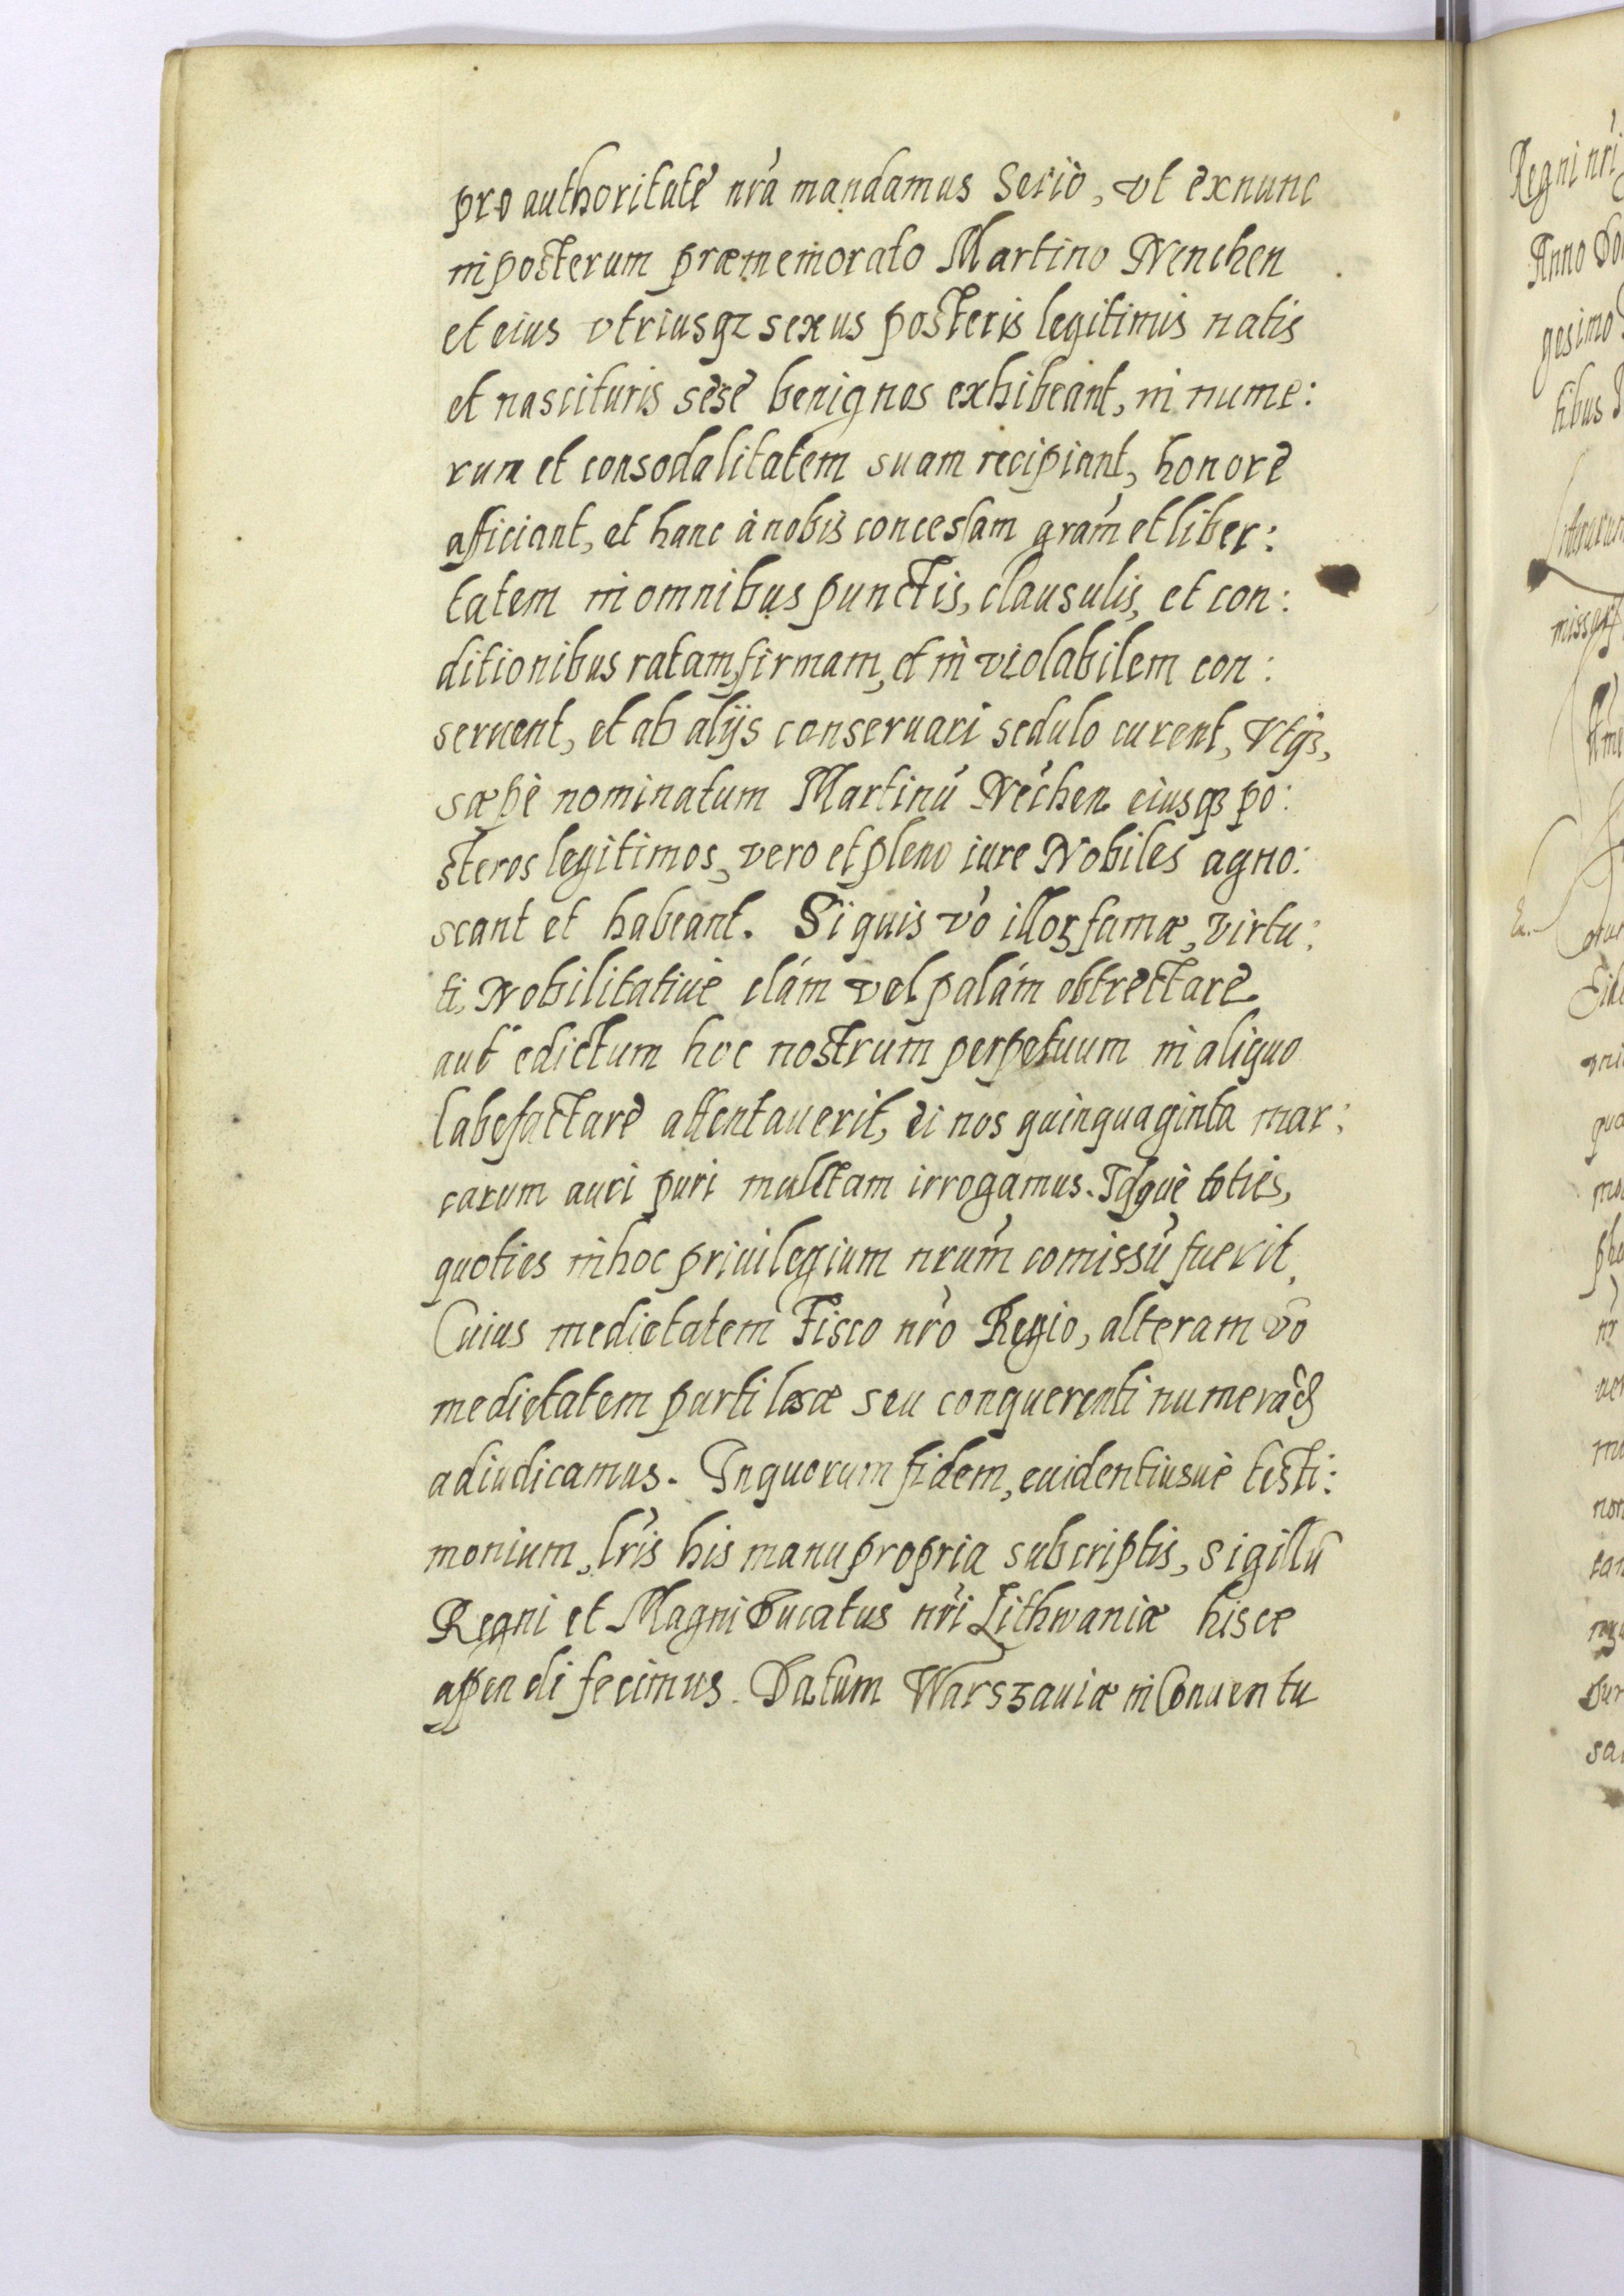 pro authoritate nrā mandamus Seriò, vt exnunc
in posterum præmemorato Martino Nenchen
et eius vtriusqz sexus posteris legitimis natis
et nascituris sese benignos exhibeant, in nume:
rum et consodalitatem suam recipiant, honore
afficiant, et hanc à nobis concessam gram̄ et liber:
tatem in omnibus punctis, clausulis, et con:
ditionibus ratam, firmam, et inviolabilem con:
seruent, et ab alijs conseruari sedulo curent, Vtqz,
sæpè nominatum Martinū Nēchen eiusqz po:
steros legitimos, vero et pleno iure Nobiles agno:
scant et habeant. Si quis vō illoꝝ famæ, virtu:
ti, Nobilitatiuè clám vel palám obtrectare
aut edictum hoc nostrum perpetuum in aliquo
labefactare attentauerit, ei nos quinquaginta mar:
carum auri puri mulctam irrogamus. Idque toties,
quoties in hoc priuilegium nrum̄ comissū fuerit,
Cuius medietatem Fisco nrō Regio, alteram vō
medietatem parti læsæ seu conquerenti numerādꝫ
adiudicamus. In quorum fidem, euidentiusuè testi:
monium, lrīs his manu propria subcriptis, Sigillū
Regni et Magni Ducatus nrī Lithwaniæ hisce
apendi fecimus. Datum Warszauiæ in Conuentu
Regni nrī
Anno Do
gesimo
tibus